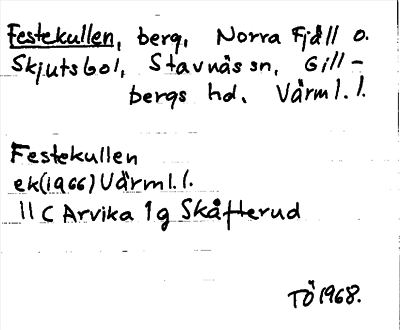 Festekullen, berg, Norra Fjäll o.
Skjutsbol, Stavnäs sn, Gill-
bergs hd, Värml. l.
Festekullen
ek(1966) Värml. l.
11 C Arvika 1g Skåfterud
TÖ 1968.